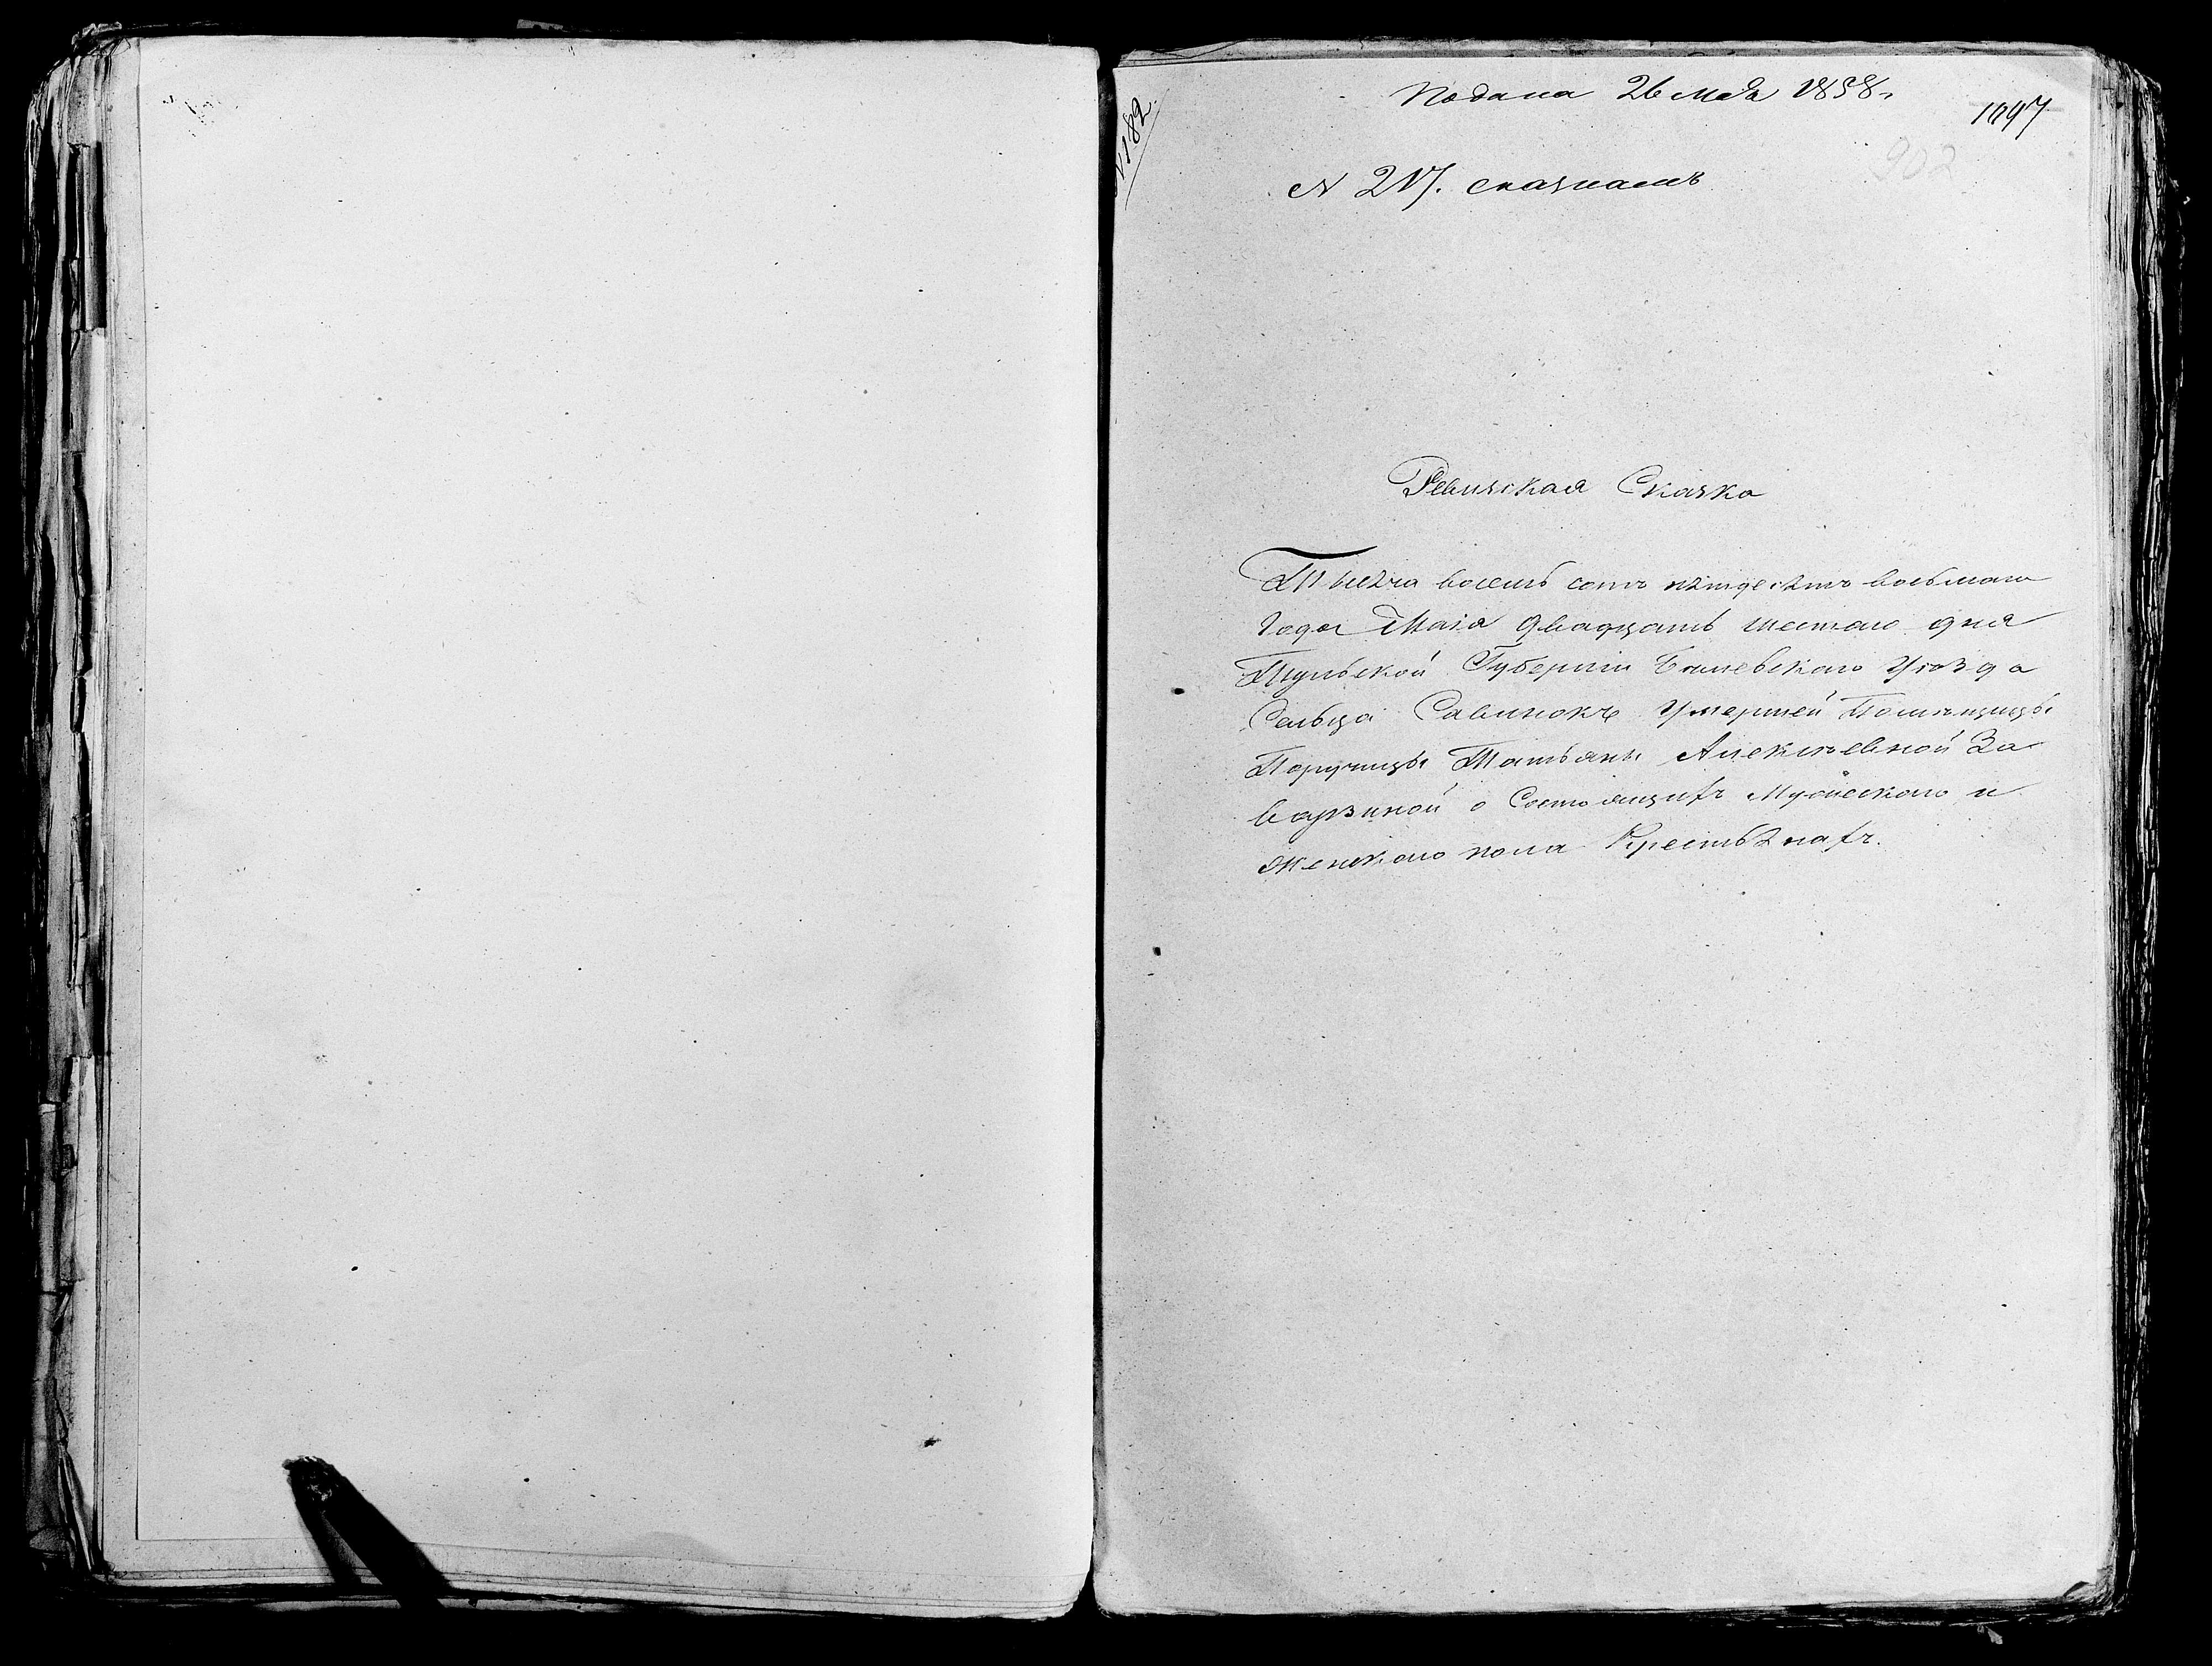 Подана 26 Мая 1858.
1097
902
N 182.
N 217.
Ревизская Сказка
Тысеча восемь сотъ пятдесятъ восьмаго
Года Маія двадцать шестаго дня
Тульской Губерніи Бѣлевскаго Уѣзда
Сельца Савинокъ Умершей Помѣщицы
Поручицы Татьяны Алексѣевной За
варзиной о Состоящихъ Мужескаго и
женскаго пола Крестьянахъ.